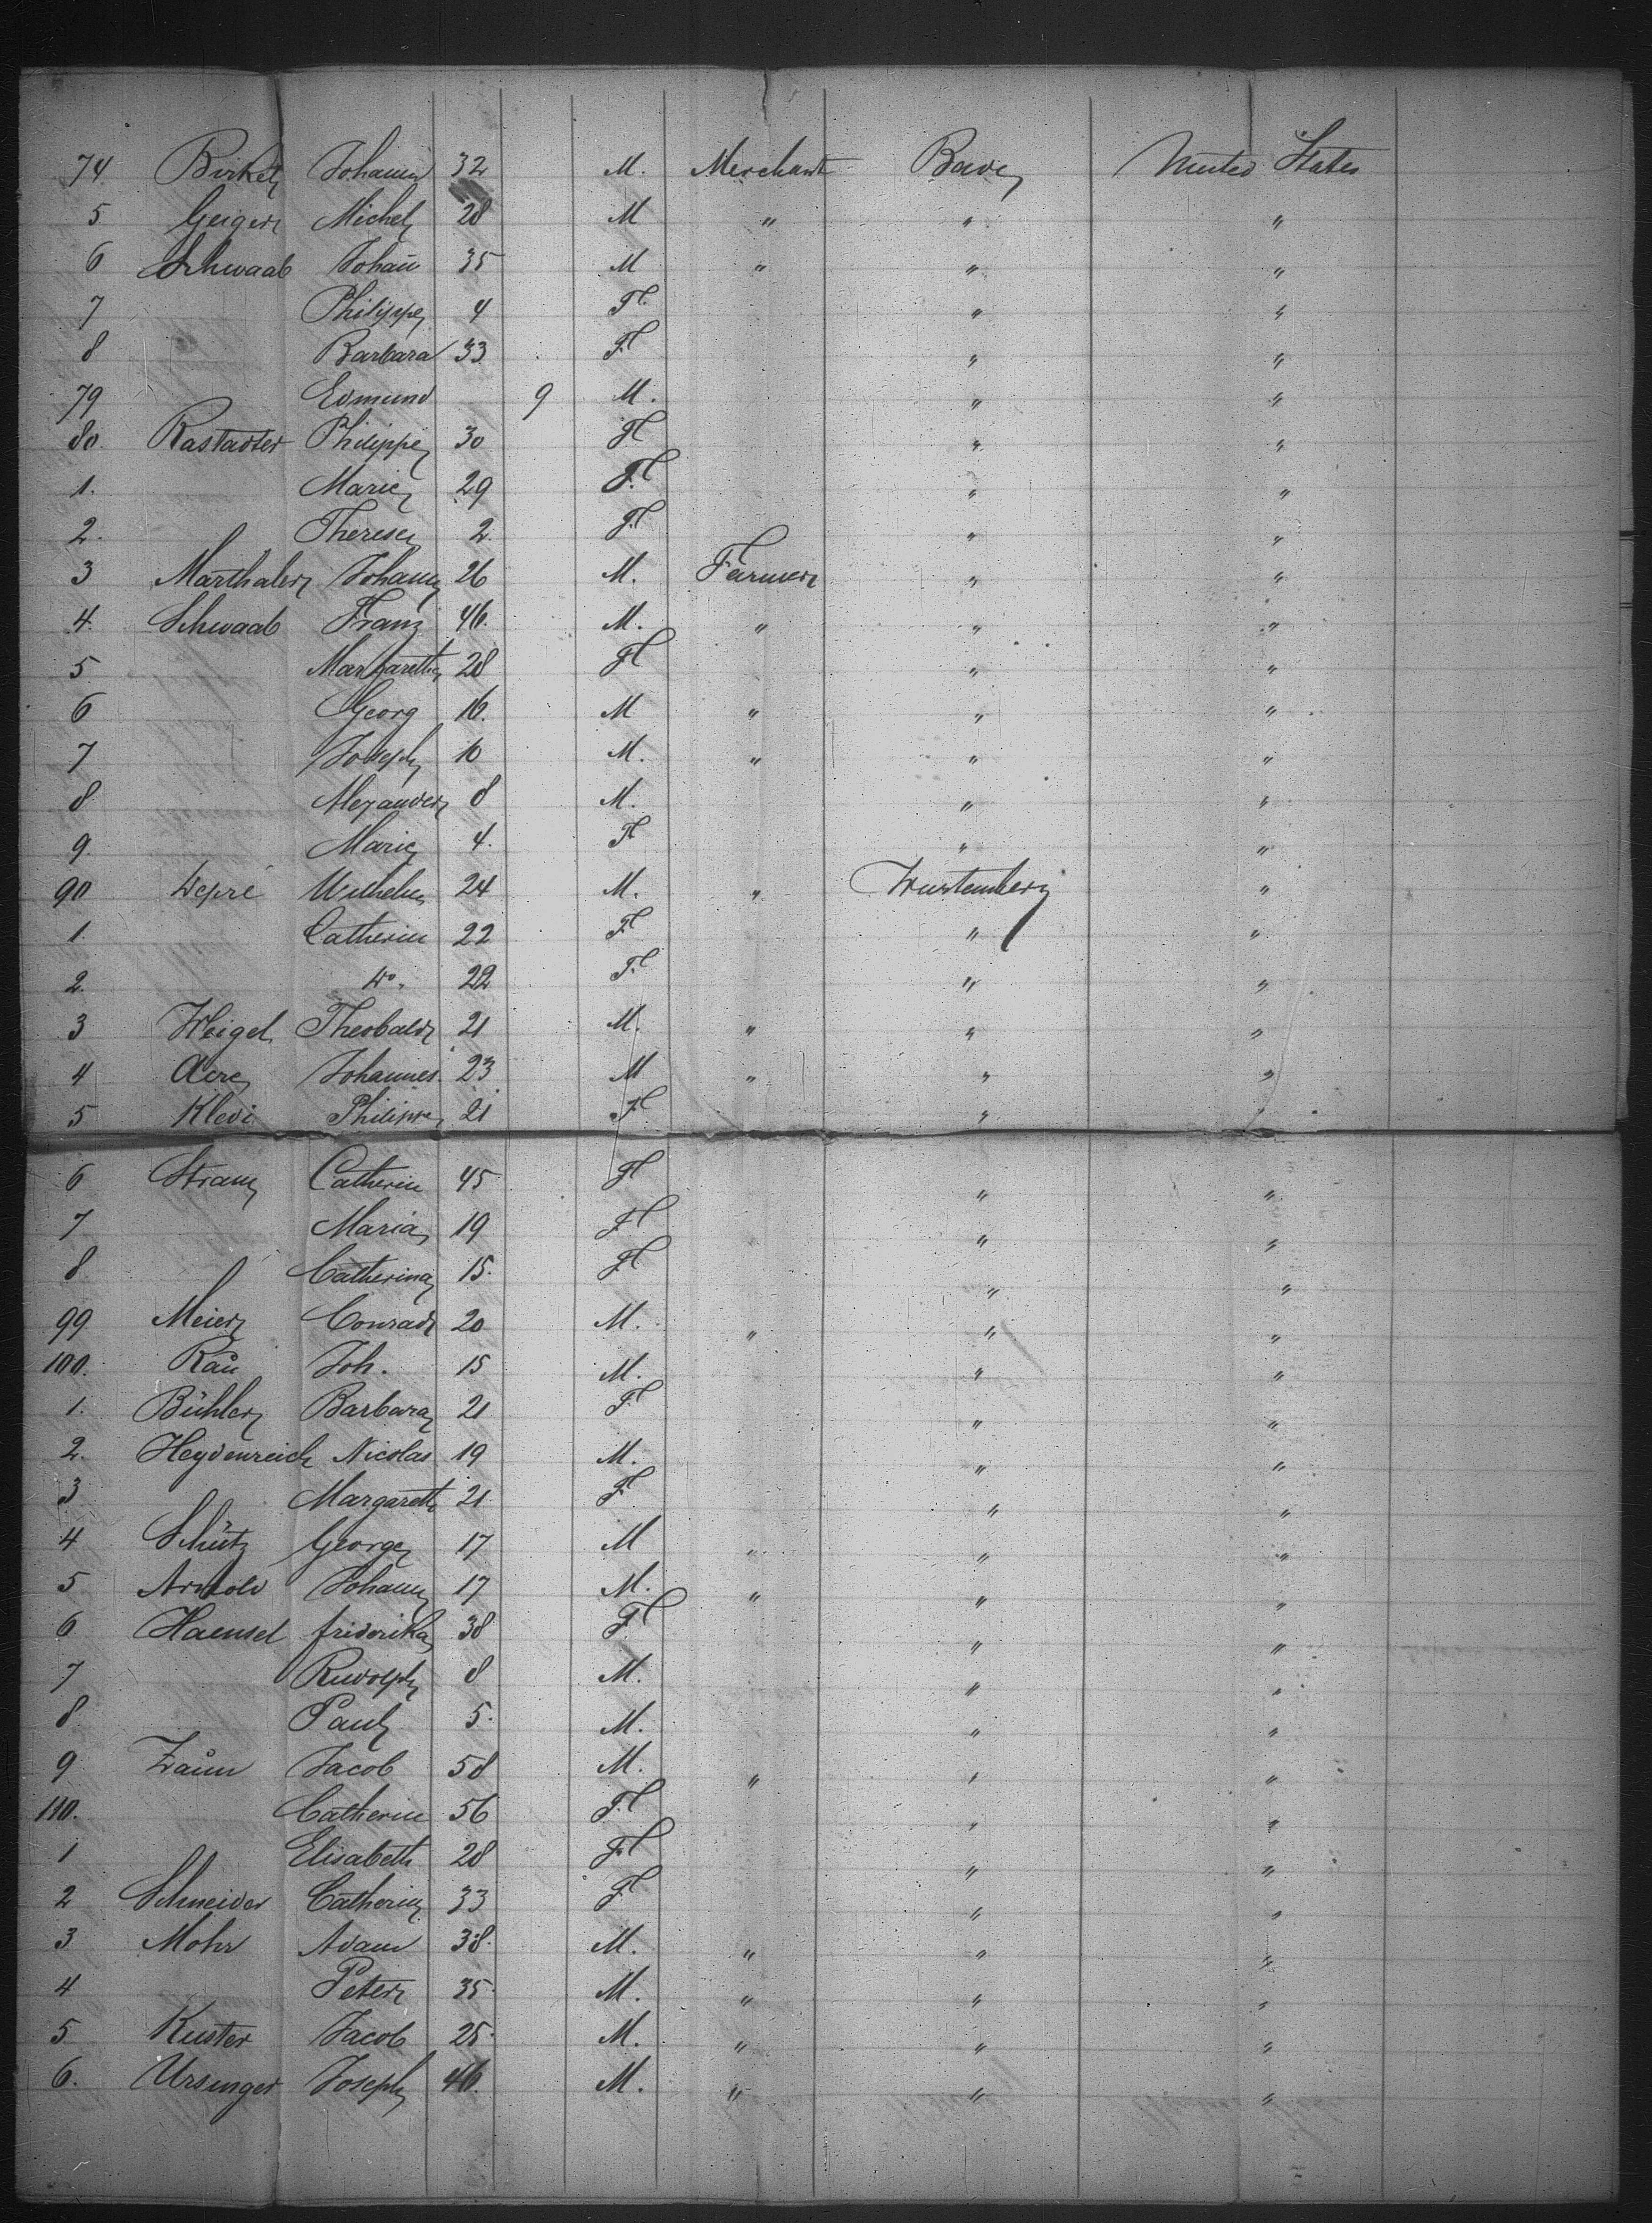 74 Birkel Johann 32 M. Merchant Baden United States
5 Geiger Michel 28 M " " "
6 Schwaab Johan̄ 35 M " " "
7 Philippe 4 F. " "
8 Barbara 33 F " "
79 Edmund 9 M. " "
80. Rastadter Philippe 30 F " "
1. Marie 29 F. " "
2. Therese 2. F. " "
3 Marthaler Johann 26 M. Farmer " "
4. Schwaab Franz 46. M. " " "
5 Margarethe 28 F " "
6 Georg 16. M " " "
7 Joseph 10 M. " " "
8 Alexander 8 M. " "
9. Marie 4. F " "
90 Depré Wilhelm 24 M. " Wurtemberg "
1. Catherin 22 F. " "
2. Do. 22 F. " "
3 Weigel Theobald 21 M. " " "
4 Johannes. 23 M " " "
5 Kledi Philippe 21 F " "
6 Catherin 45 F " "
7 Maria 19 F " "
8 Catherina 15. F " "
99 Meier Conrad 20 M. " " "
100. Rau Joh. 15 M. " "
1. Bühler Barbara 21 F. " "
2. Heydenreich Nicolas 19 M. " "
3 Margareth 21. F. " "
4 Schütz George 17 M " " "
5 Arnold Johann 17 M. " " "
6 Haensel friderika 38 F. " "
7 Rudolph 8 M. " "
8 Paul 5. M. " "
9 Zaun Jacob 58 M. " " "
110. Catherin 56 F. " "
1 Elisabeth 28 F " "
2 Schneider Catherin 33 F " "
3 Mohr Adam 38. M. " " "
4 Peter 35. M. " " "
5 Kuster Jacob 25. M. " " "
6. Ursinger Joseph 46. M. " " "